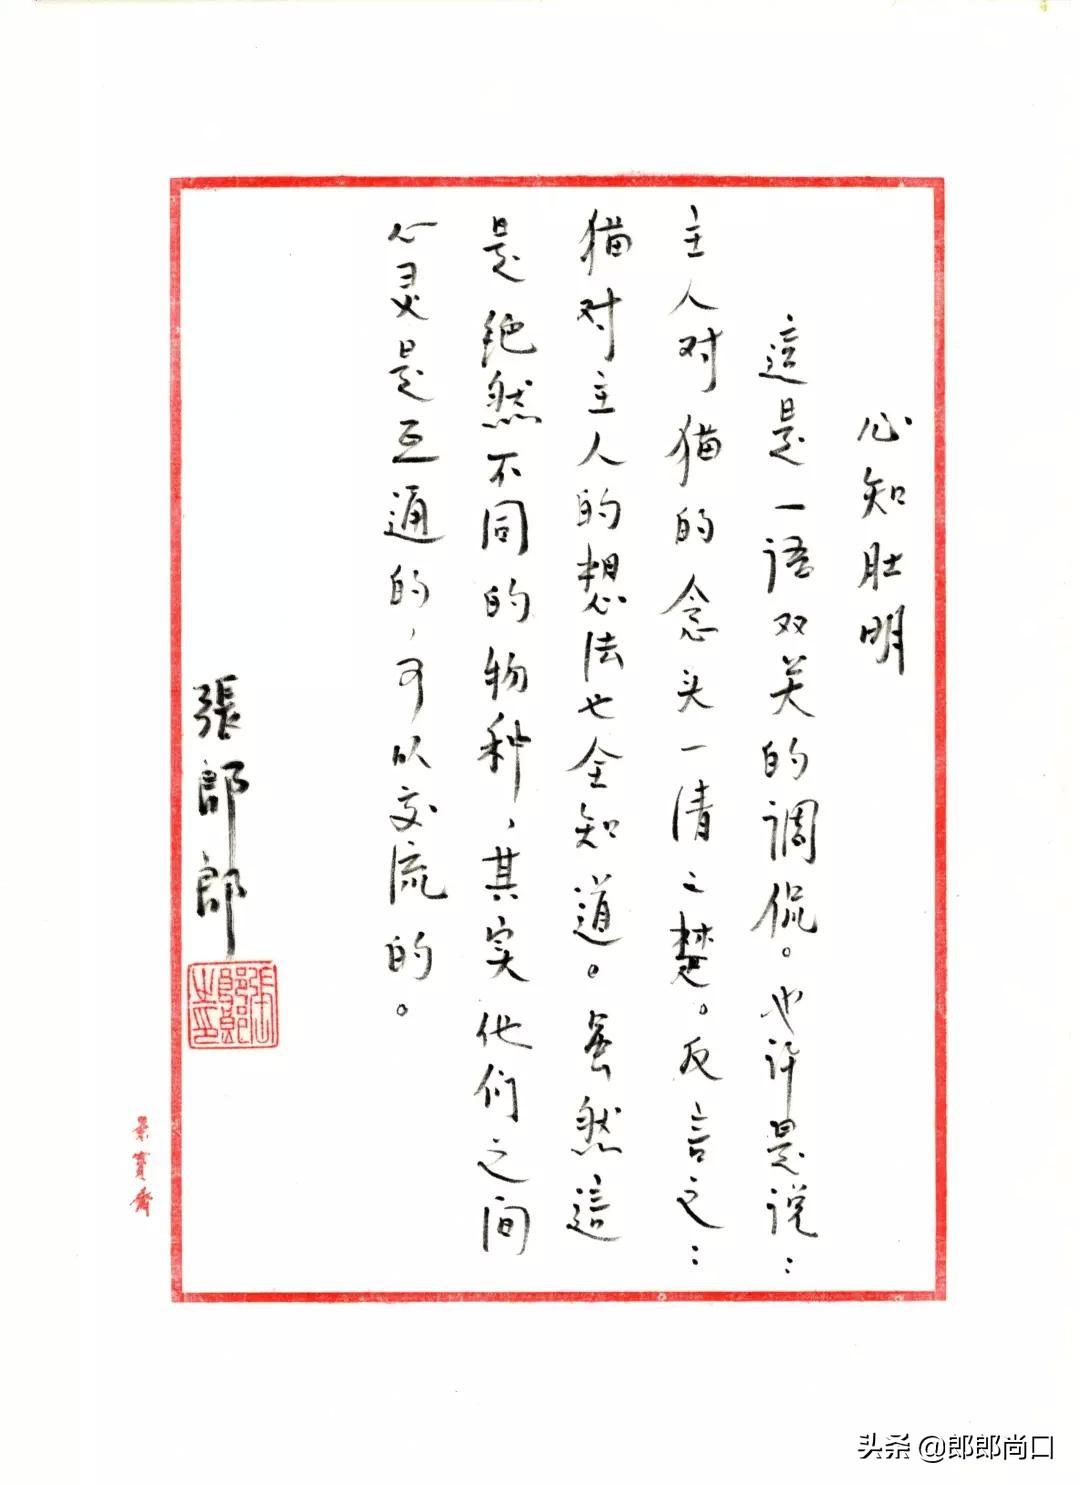 心知肚明
這是一语双关的调侃。也许是说：
主人对猫的念头一清之楚。反言之：
猫对主人的想法也全知道。虽然這
是绝然不同的物种，其实他们之间
心灵是互通的，可以交流的。
張郎郎
張郎郎之印
荣寳斋
头条 @郎郎尚口